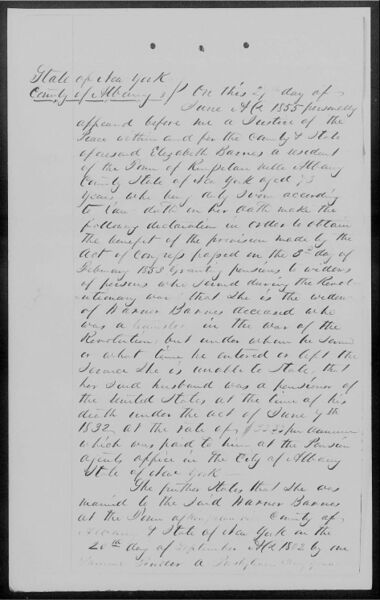 State of New York
County of Albany ss/ On this 2 day of
June AD 1855 personally
appeared before me a Justice of the
Peace within and for the County & State
aforesaid Elizabeth Barnes a resident
of the Town of Rensselaerville Albany
County State of New York aged
years who being duly sworn according
to law doth on her oath make the
following declaration in order to obtain
the benefit of the provision made by the
Act of Congress passed on the 3d day of
February 1853 granting pensions to widows
of persons who served during the Revol-
utionary war; that she is the widow
of Warner Barnes deceased who
was a teamster in the war of the
Revolution, but under whom he served
or what time he entered or left the
service she is unable to State, that
her said husband was a pensioner of
the United States at the time of his
death under the act of June 7th
1832 at the rate of $ per annum
which was paid to him at the Pension
agents office in the City of Albany
State of New York
She further states that she was
married to the said Warner Barnes
at the Town of County of
Albany & State of New York on the
20th day of September AD 1802 by one
a